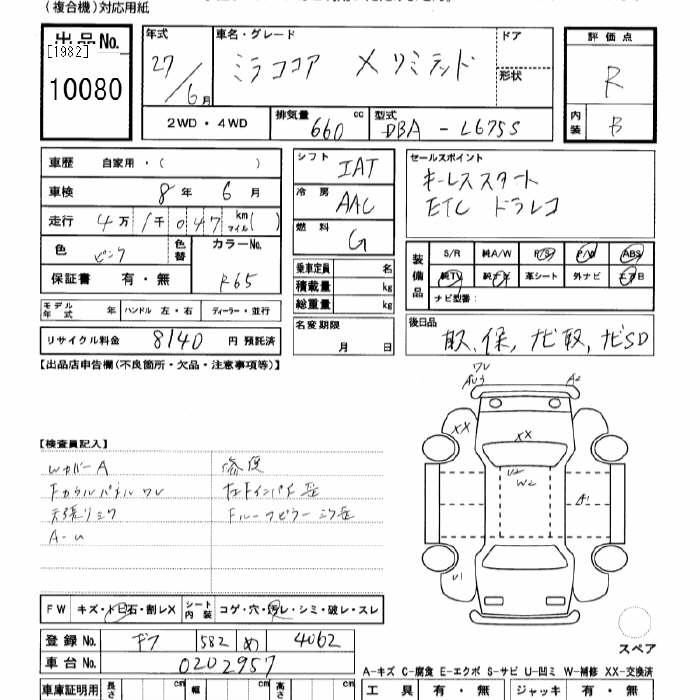 (複合機)対応用紙
出品No. [1982] 10080
年式 27/6月
車名・グレード ミラココア X リミテッド
ドア
形状
評価点 R
内装 B
2WD・4WD
排気量 660 cc
型式 DBA - L675S
車歴 自家用・( )
シフト IAT
セールスポイント
キーレススタート
ETC ドラレコ
車検 8年 6月
冷房 AAC
走行 4万1千047 km マイル( )
燃料 G
色 ピンク
色替
カラーNo. R65
保証書 有・無
乗車定員 名
積載量 kg
総重量 kg
装備品 S/R 純A/W P/S P/W ABS
純TV 純ナビ 革シート 外ナビ エアB
ナビ型番:
モデル年式 年 ハンドル 左・右 ディーラー・並行
名変期限 月 日
後日品 取、保、ナビ取、ナビSD
リサイクル料金 8140 円 預託済
【出品店申告欄(不良箇所・欠品・注意事項等)】
ワレ
AU3 A2
【検査員記入】
XX
XX
WカバーA
修復
U2
W2
Fカウルパネルワレ
右Fインパネ歪
A1
天張りシワ
Fルーフピラーミグ歪
A-U
U1
FW キズ・トビ石・割レX シート内装 コゲ・穴・汚レ・シミ・破レ・スレ
登録No. 582 め 4062
スペア
車台No. 0202957
A-キズ C-腐食 E-エクボ S-サビ U-凹ミ W-補修 XX-交換済
車庫証明用 長さ cm 幅 cm 高さ cm
工具 有・無 ジャッキ 有・無